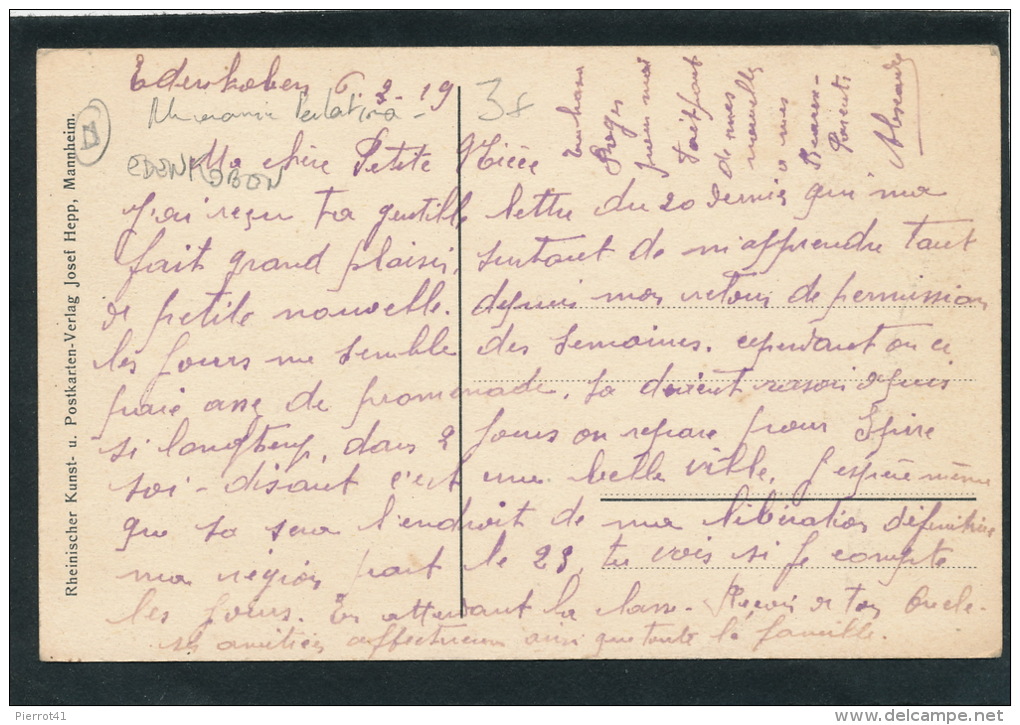 Edenkoben 6-2-19
3f
EDENKOBON
Ma chère Petite Nièce
J'ai reçu ta gentille lettre du 20 dernier qui m'a
fait grand plaisir, surtout de m'apprendre tant
de petite nouvelle. depuis mon retour de permission
les jours me semble des semaines. cependant on ce
paie assé de promenade. Sa devient rasoir depuis
si longtemp, dans 2 jours on repare pour Spire
soi-disant c'est une belle ville. J'espère même
que sa sera l'endroit de ma libération définitive
ma région part le 23, tu vois si je compte
les jours. En attendant la classe - Reçois de ton Oncle
ses amitiés affectueuses ainsi que toute la famille.
Roger
quand moi
fait part
de mes
nouvelles
à mes
Beaux-
Parents
Rheinischer Kunst- u. Postkarten-Verlag Josef Hepp, Mannheim.
Pierrot41
www.delcampe.net